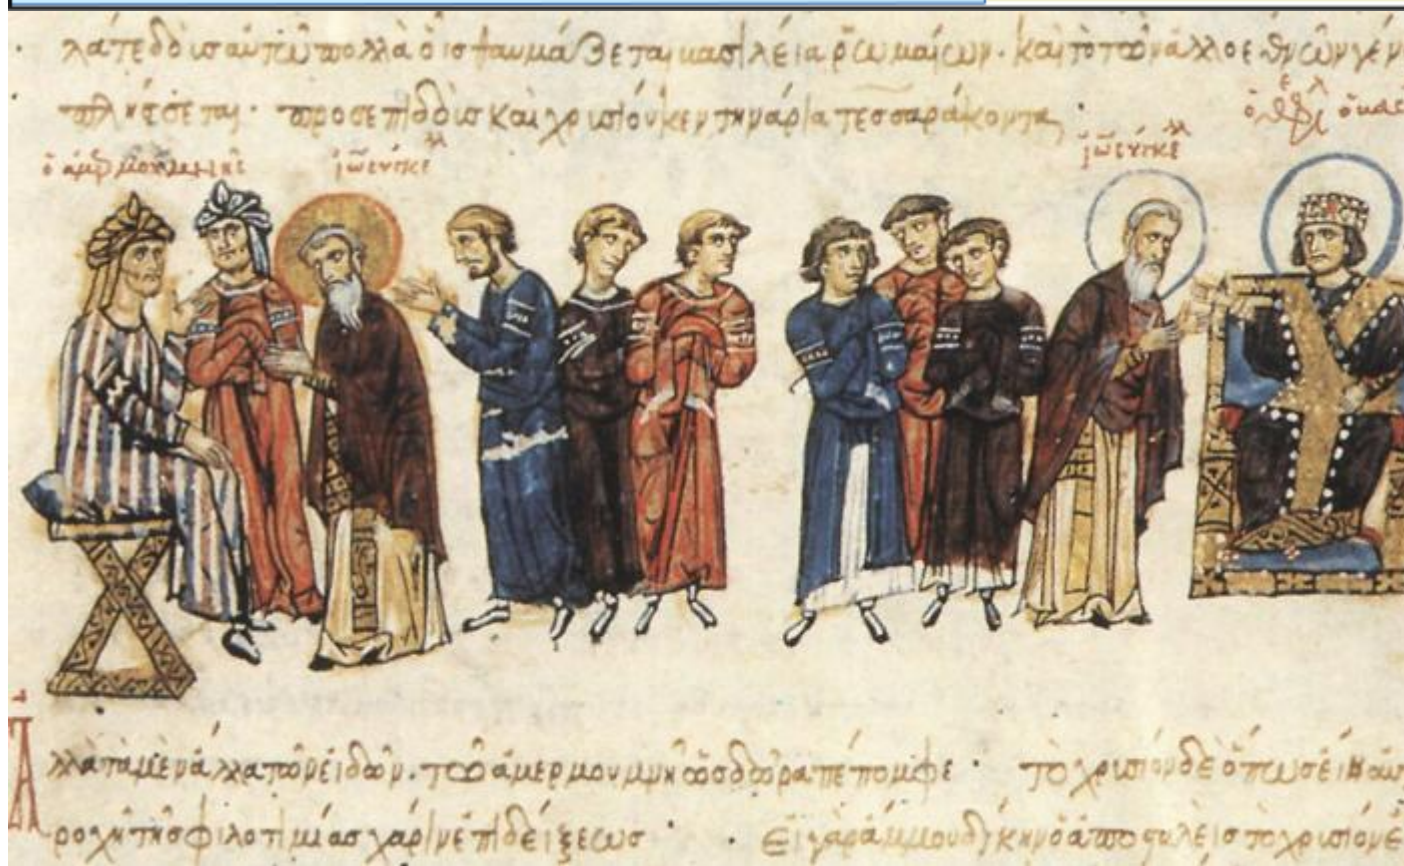 λατε δοὺς αὐτῶ πολλὰ οἷς θαυμάζεται βασιλεία ῥωμαίων· καὶ τὸ τῶν ἄλλο ἐθνῶν γέν
πλήσσεται· προσεπιδοὺς καὶ χρυσίου κεντηνάρια τεσσαράκοντα
ὁ ἀμερμουμνῆς
ἰῶ σύγκελ
ἰῶ σύγκελ
ὁ θεόφιλ ὁ βασ
Ἀλλὰ τὰ μὲν ἄλλα τῶν εἰδῶν. τῶ ἀμερμουμνῆ ὡς δῶρα πέπομφε· τὸ χρυσίον δὲ ὅπως εἴη αὐτ
ροχὴ τῆς φιλοτιμίας χάριν ἐπιδείξεως· εἰ γὰρ ἄμμου δίκην ὁ ἀποσταλεὶς τὸ χρυσίον ἐ